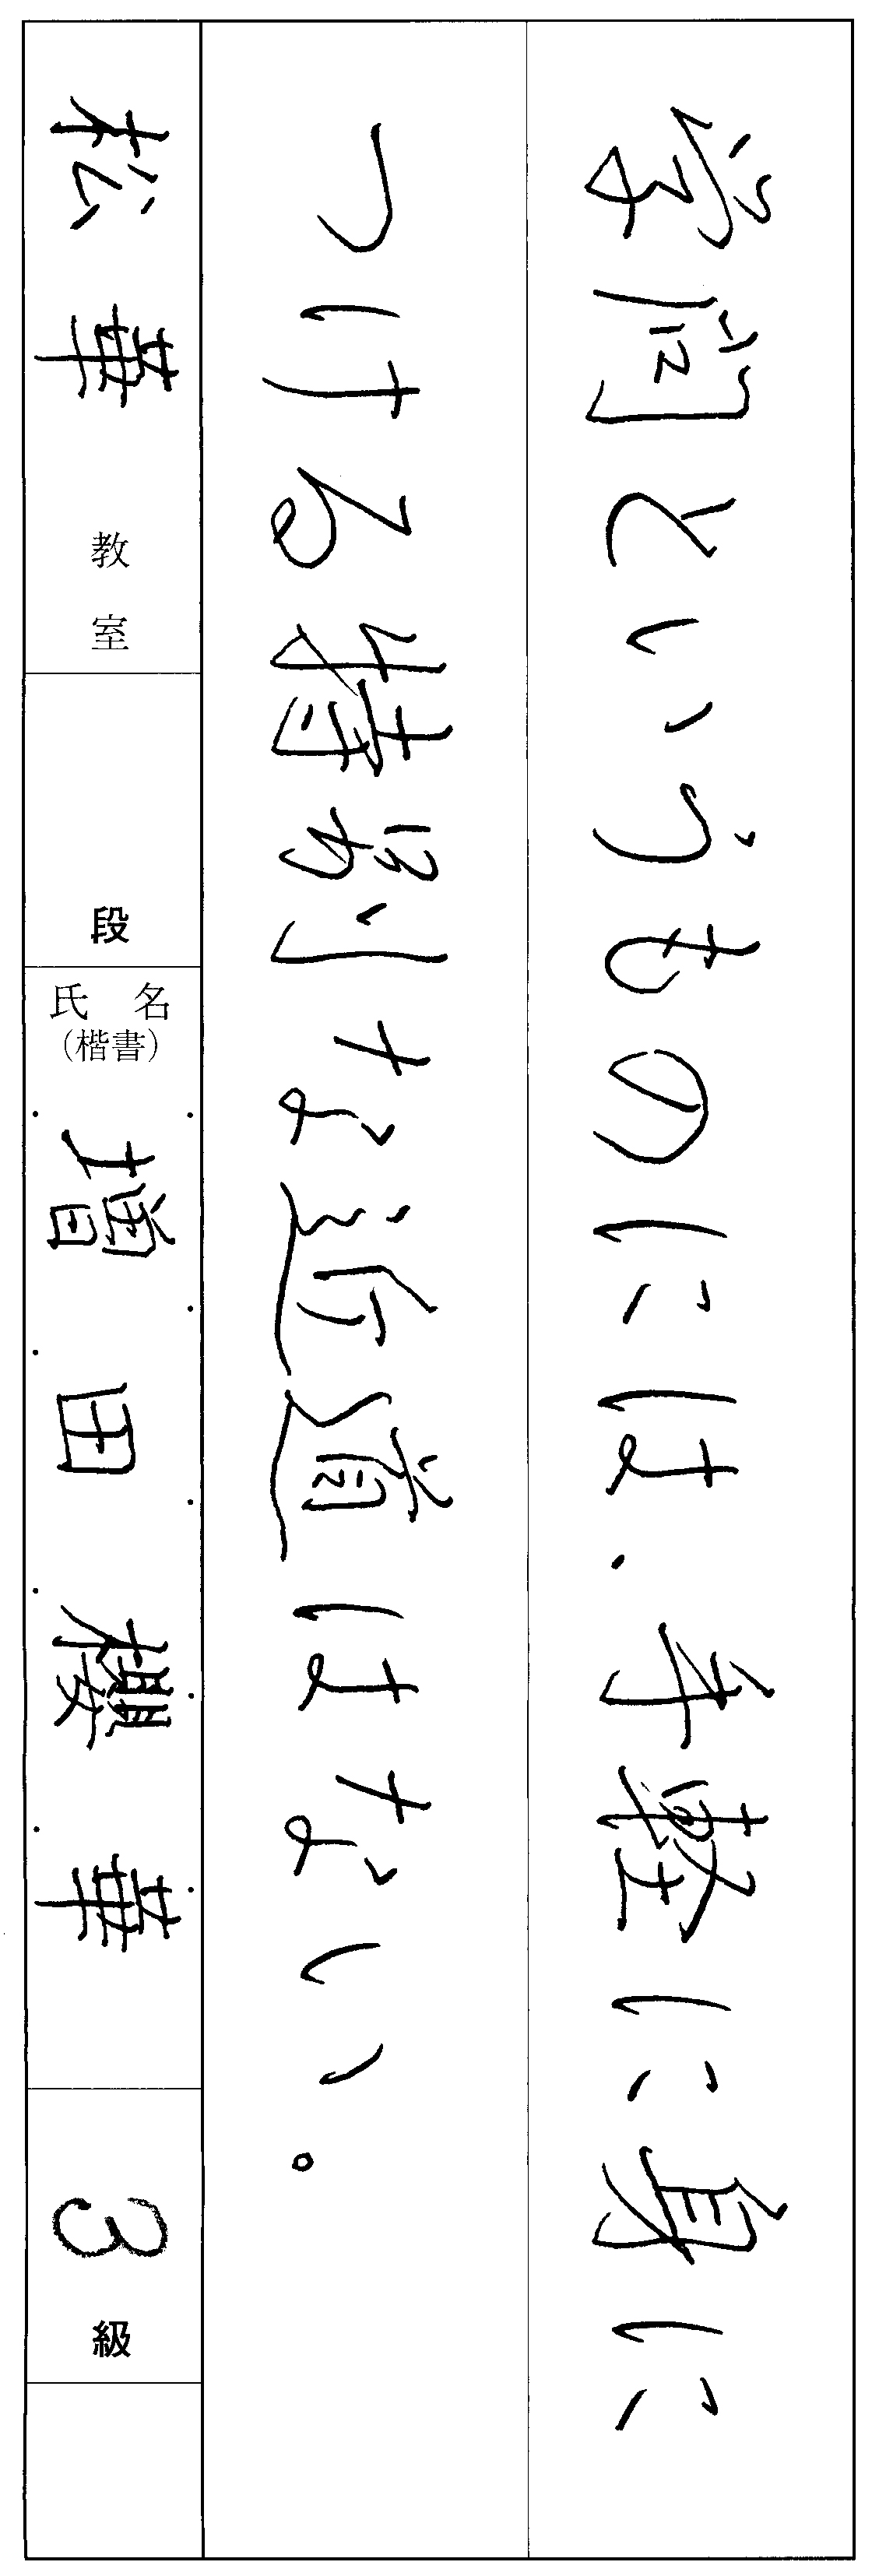 学問というものには、手軽に身に
つける特別な近道はない。
松華教室
段
氏名
(楷書)
増田櫻華
3級